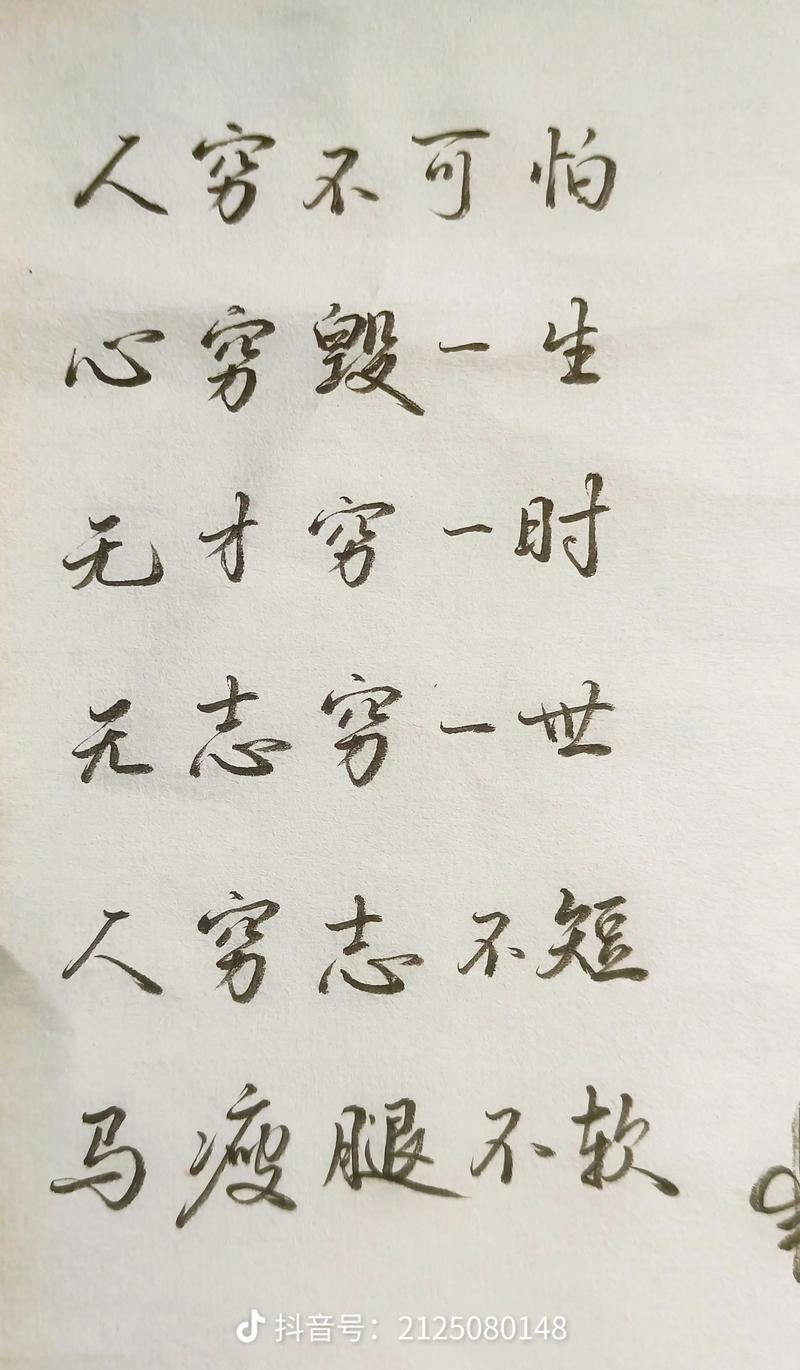 人穷不可怕
心穷毁一生
无才穷一时
无志穷一世
人穷志不短
马瘦腿不软
抖音号：2125080148